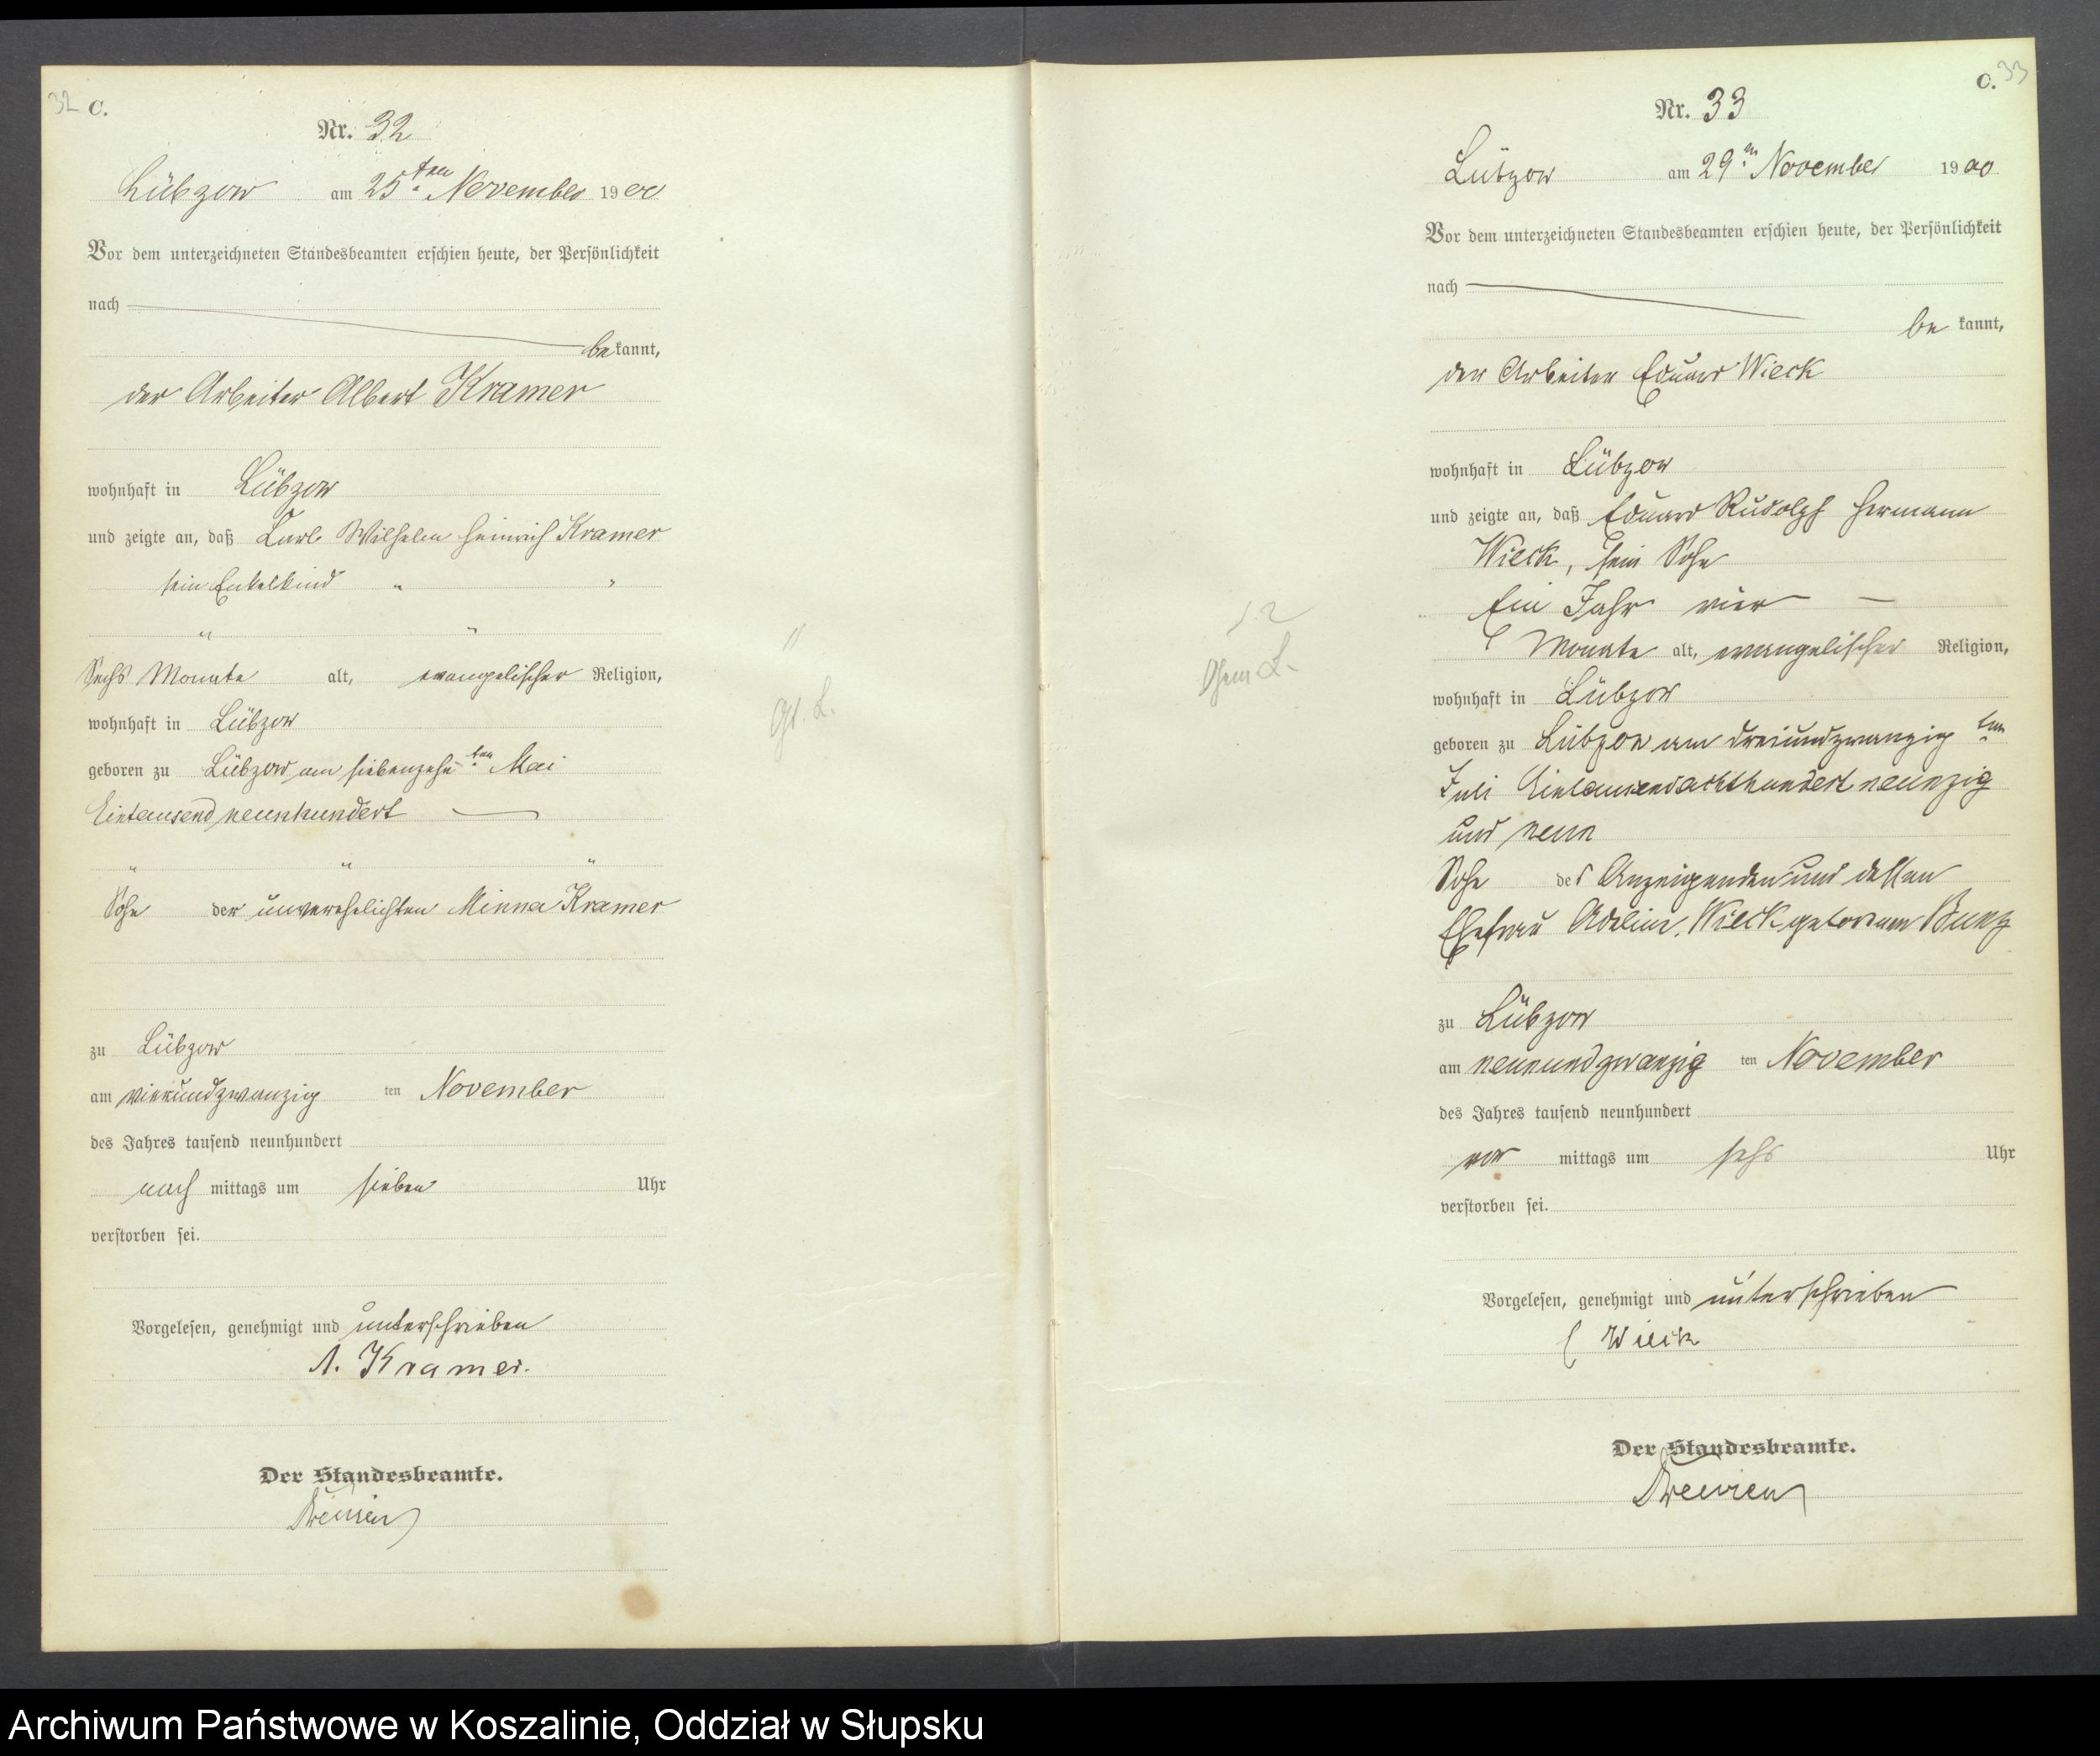 32 C.
Nr. 32
Lübzow am 25ten November 1900
Vor dem unterzeichneten Standesbeamten erschien heute, der Persönlichkeit
nach
bekannt,
der Arbeiter Albert Kramer
wohnhaft in Lübzow
und zeigte an, daß Carl Wilhelm Heinrich Kramer
sein Enkelkind " "
" "
Sechs Monate alt, evangelischer Religion,
wohnhaft in Lübzow
geboren zu Lübzow am siebenzehnten Mai
Eintausend neunhundert —
" " "
Sohn der unverehelichten Minna Kramer
zu Lübzow
am vierundzwanzig ten November
des Jahres tausend neunhundert
nach mittags um sieben Uhr
verstorben sei.
Vorgelesen, genehmigt und unterschrieben
A. Kramer.
Der Standesbeamte.
C. 33
Nr. 33
Lübzow am 29n November 1900
Vor dem unterzeichneten Standesbeamten erschien heute, der Persönlichkeit
nach
be kannt,
der Arbeiter Eduard Wieck
wohnhaft in Lübzow
und zeigte an, daß Eduard Rudolph Hermann
Wieck, sein Sohn
Ein Jahr vier —
Monate alt, evangelischer Religion,
wohnhaft in Lübzow
geboren zu Lübzow am dreiundzwanzig ten
Juli Eintausendachthundert neunzig
und neun
Sohn des Anzeigenden und dessen
Ehefrau Adeline Wieck geborenen
zu Lübzow
am neunundzwanzig ten November
des Jahres tausend neunhundert
vor mittags um sechs Uhr
verstorben sei.
Vorgelesen, genehmigt und unterschrieben
E Wieck
Der Standesbeamte.
Archiwum Państwowe w Koszalinie, Oddział w Słupsku